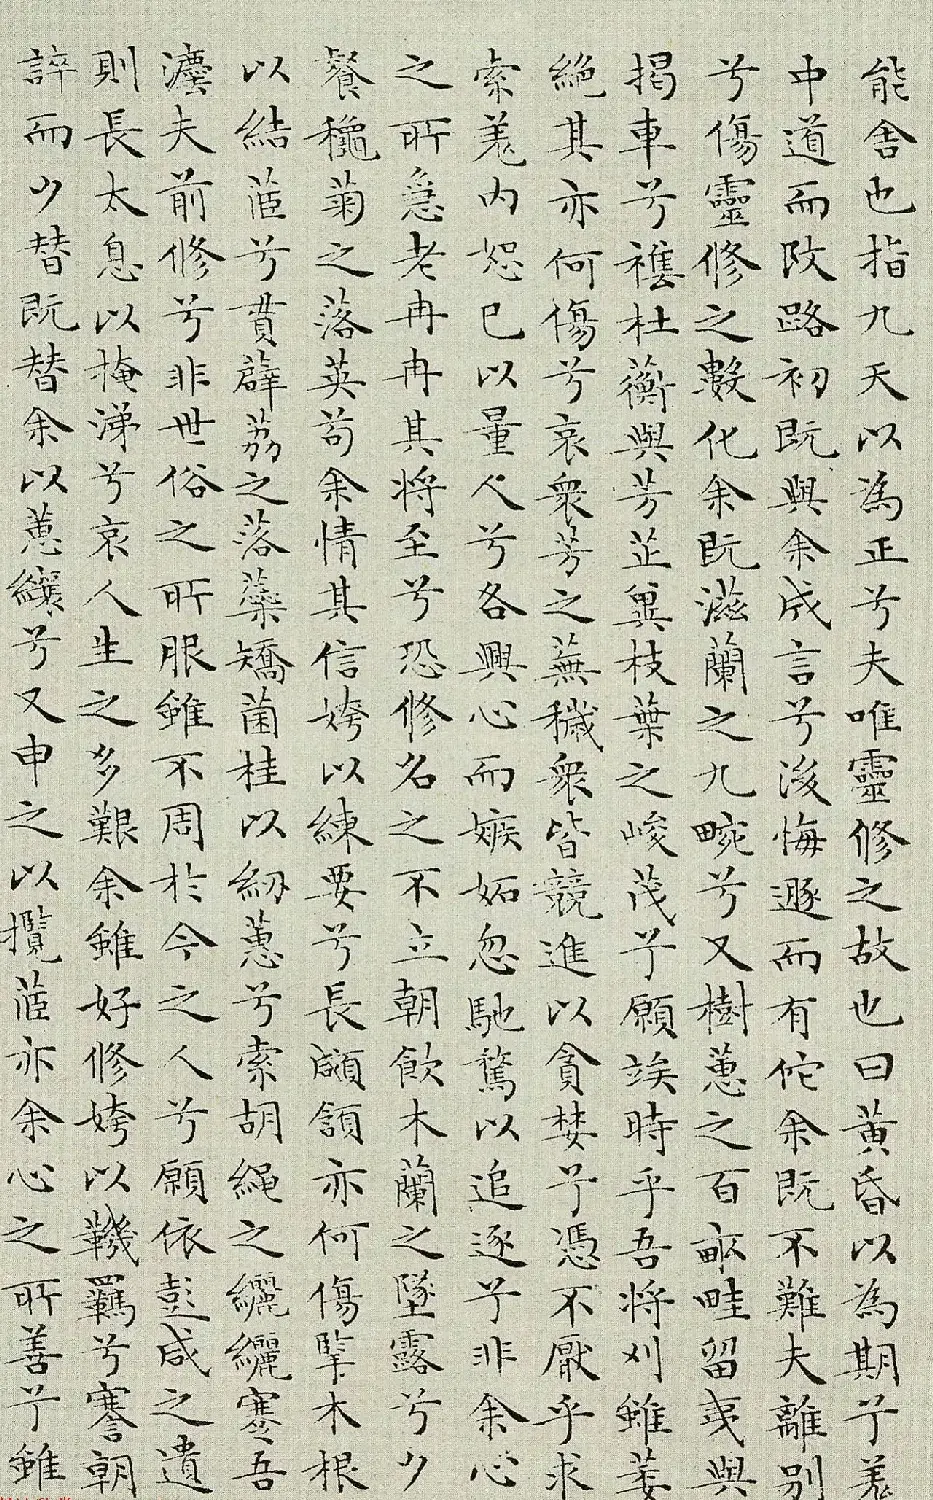 能舍也指九天以為正兮夫唯靈修之故也曰黃昏以為期兮羌
中道而改路初既與余成言兮後悔遯而有佗余既不難夫離別
兮傷靈修之數化余既滋蘭之九畹兮又樹蕙之百畝畦留夷與
揭車兮襍杜蘅與芳芷兾枝葉之峻茂兮願竢時乎吾將刈雖萎
絕其亦何傷兮哀衆芳之蕪穢衆皆競進以貪婪兮憑不厭乎求
索羌內恕已以量人兮各興心而嫉妬忽馳騖以追逐兮非余心
之所急老冉冉其將至兮恐修名之不立朝飲木蘭之墜露兮夕
餐秋菊之落英苟余情其信姱以練要兮長顑頷亦何傷掔木根
以結茝兮貫薜荔之落蘂矯菌桂以紉蕙兮索胡繩之纚纚謇吾
灋夫前修兮非世俗之所服雖不周於今之人兮願依彭咸之遺
則長太息以掩涕兮哀人生之多艱余雖好修姱以鞿羇兮謇朝
誶而夕替既替余以蕙纕兮又申之以攬茝亦余心之所善兮雖